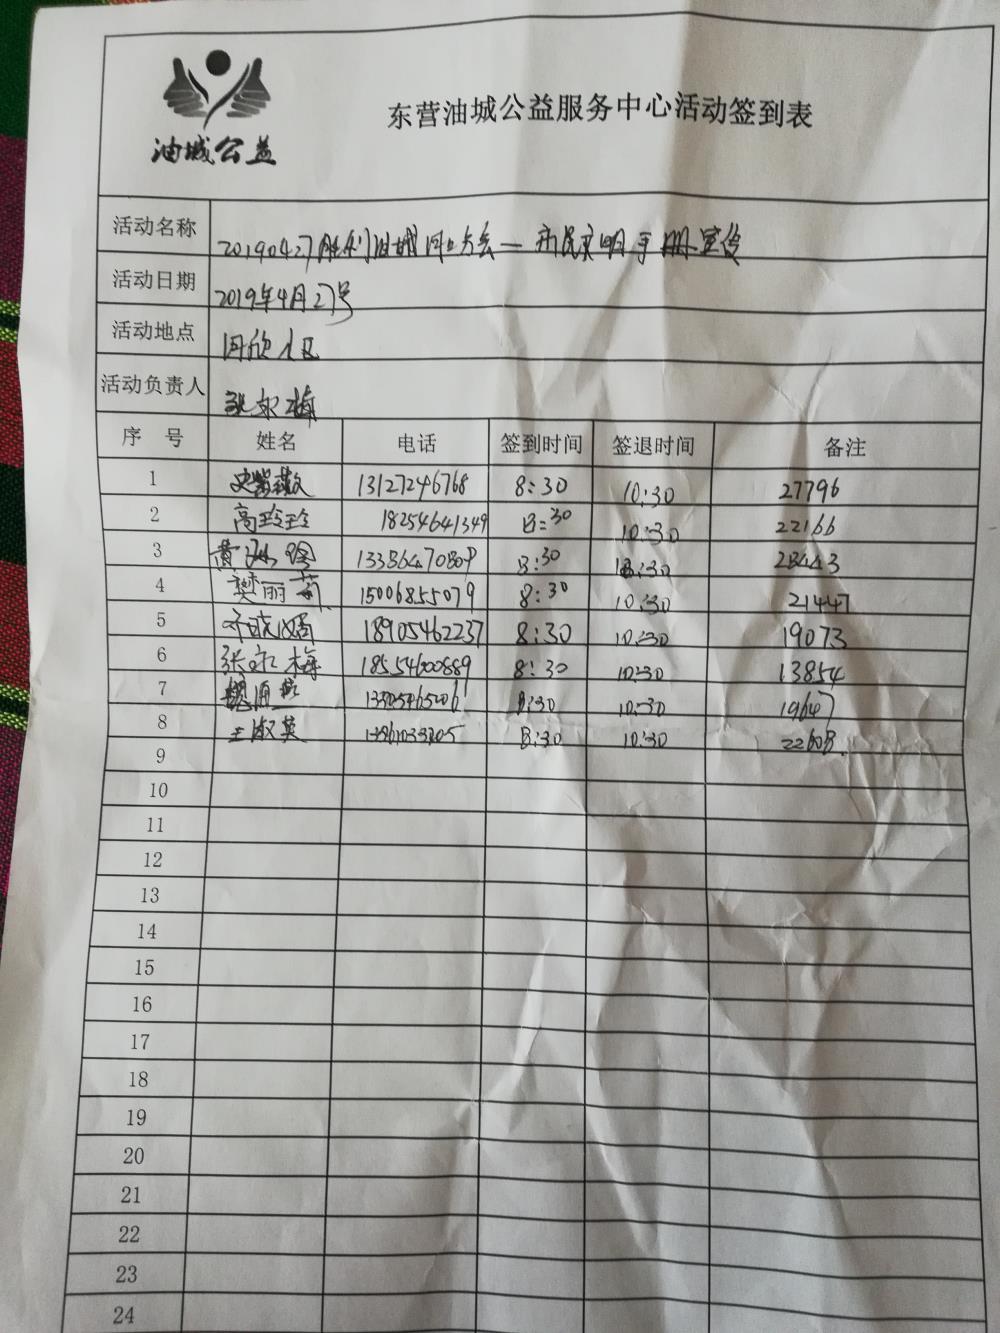 油城公益
东营油城公益服务中心活动签到表
活动名称 20190427胜利油城河口分会—市民文明手册宣传
活动日期 2019年4月27号
活动地点 河欣小区
活动负责人 张永梅
序号 姓名 电话 签到时间 签退时间 备注
1 13127246768 8:30 10:30 27796
2 高玲玲 18254641349 8:30 10:30 22166
3 黄 8:30 10:30
4 樊丽莉 15006855079 8:30 10:30 21447
5 18905462237 8:30 10:30 19073
6 张永梅 18554600889 8:30 10:30 13854
7 魏海燕 8:30 10:30 19647
8 王淑英 8:30 10:30 22608
9
10
11
12
13
14
15
16
17
18
19
20
21
22
23
24